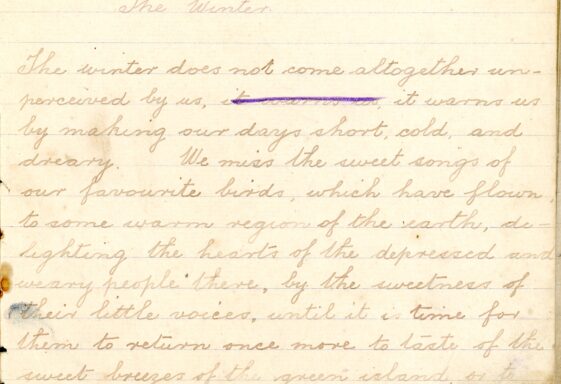 The Winter.
The winter does not come altogether un-
perceived by us, it warns us, it warns us
by making our days short, cold, and
dreary. We miss the sweet songs of
our favourite birds, which have flown,
to some warm region of the earth, de-
lighting the hearts of the depressed and
weary people there, by the sweetness of
their little voices, until it is time for
them to return once more to taste of the
sweet breezes of the green island, or t